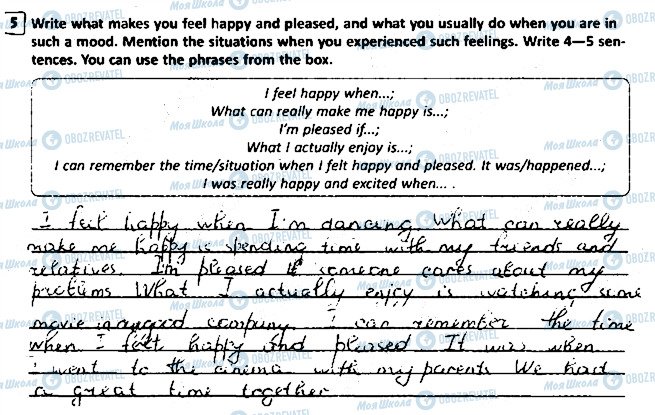 5 Write what makes you feel happy and pleased, and what you usually do when you are in
such a mood. Mention the situations when you experienced such feelings. Write 4—5 sen-
tences. You can use the phrases from the box.
I feel happy when...;
What can really make me happy is...;
I'm pleased if...;
What I actually enjoy is...;
I can remember the time/situation when I felt happy and pleased. It was/happened...;
I was really happy and excited when... .
I feel happy when I'm dancing. What can really
make me happy is spending time with my friends and
relatives. I'm pleased if someone cares about my
problems What I actually enjoy is watching some
movie in a good company. I can remember the time
when I felt happy and pleased It was when
I went to the cinema with my parents We had
a great time together
Моя Школа OBOZREVATEL